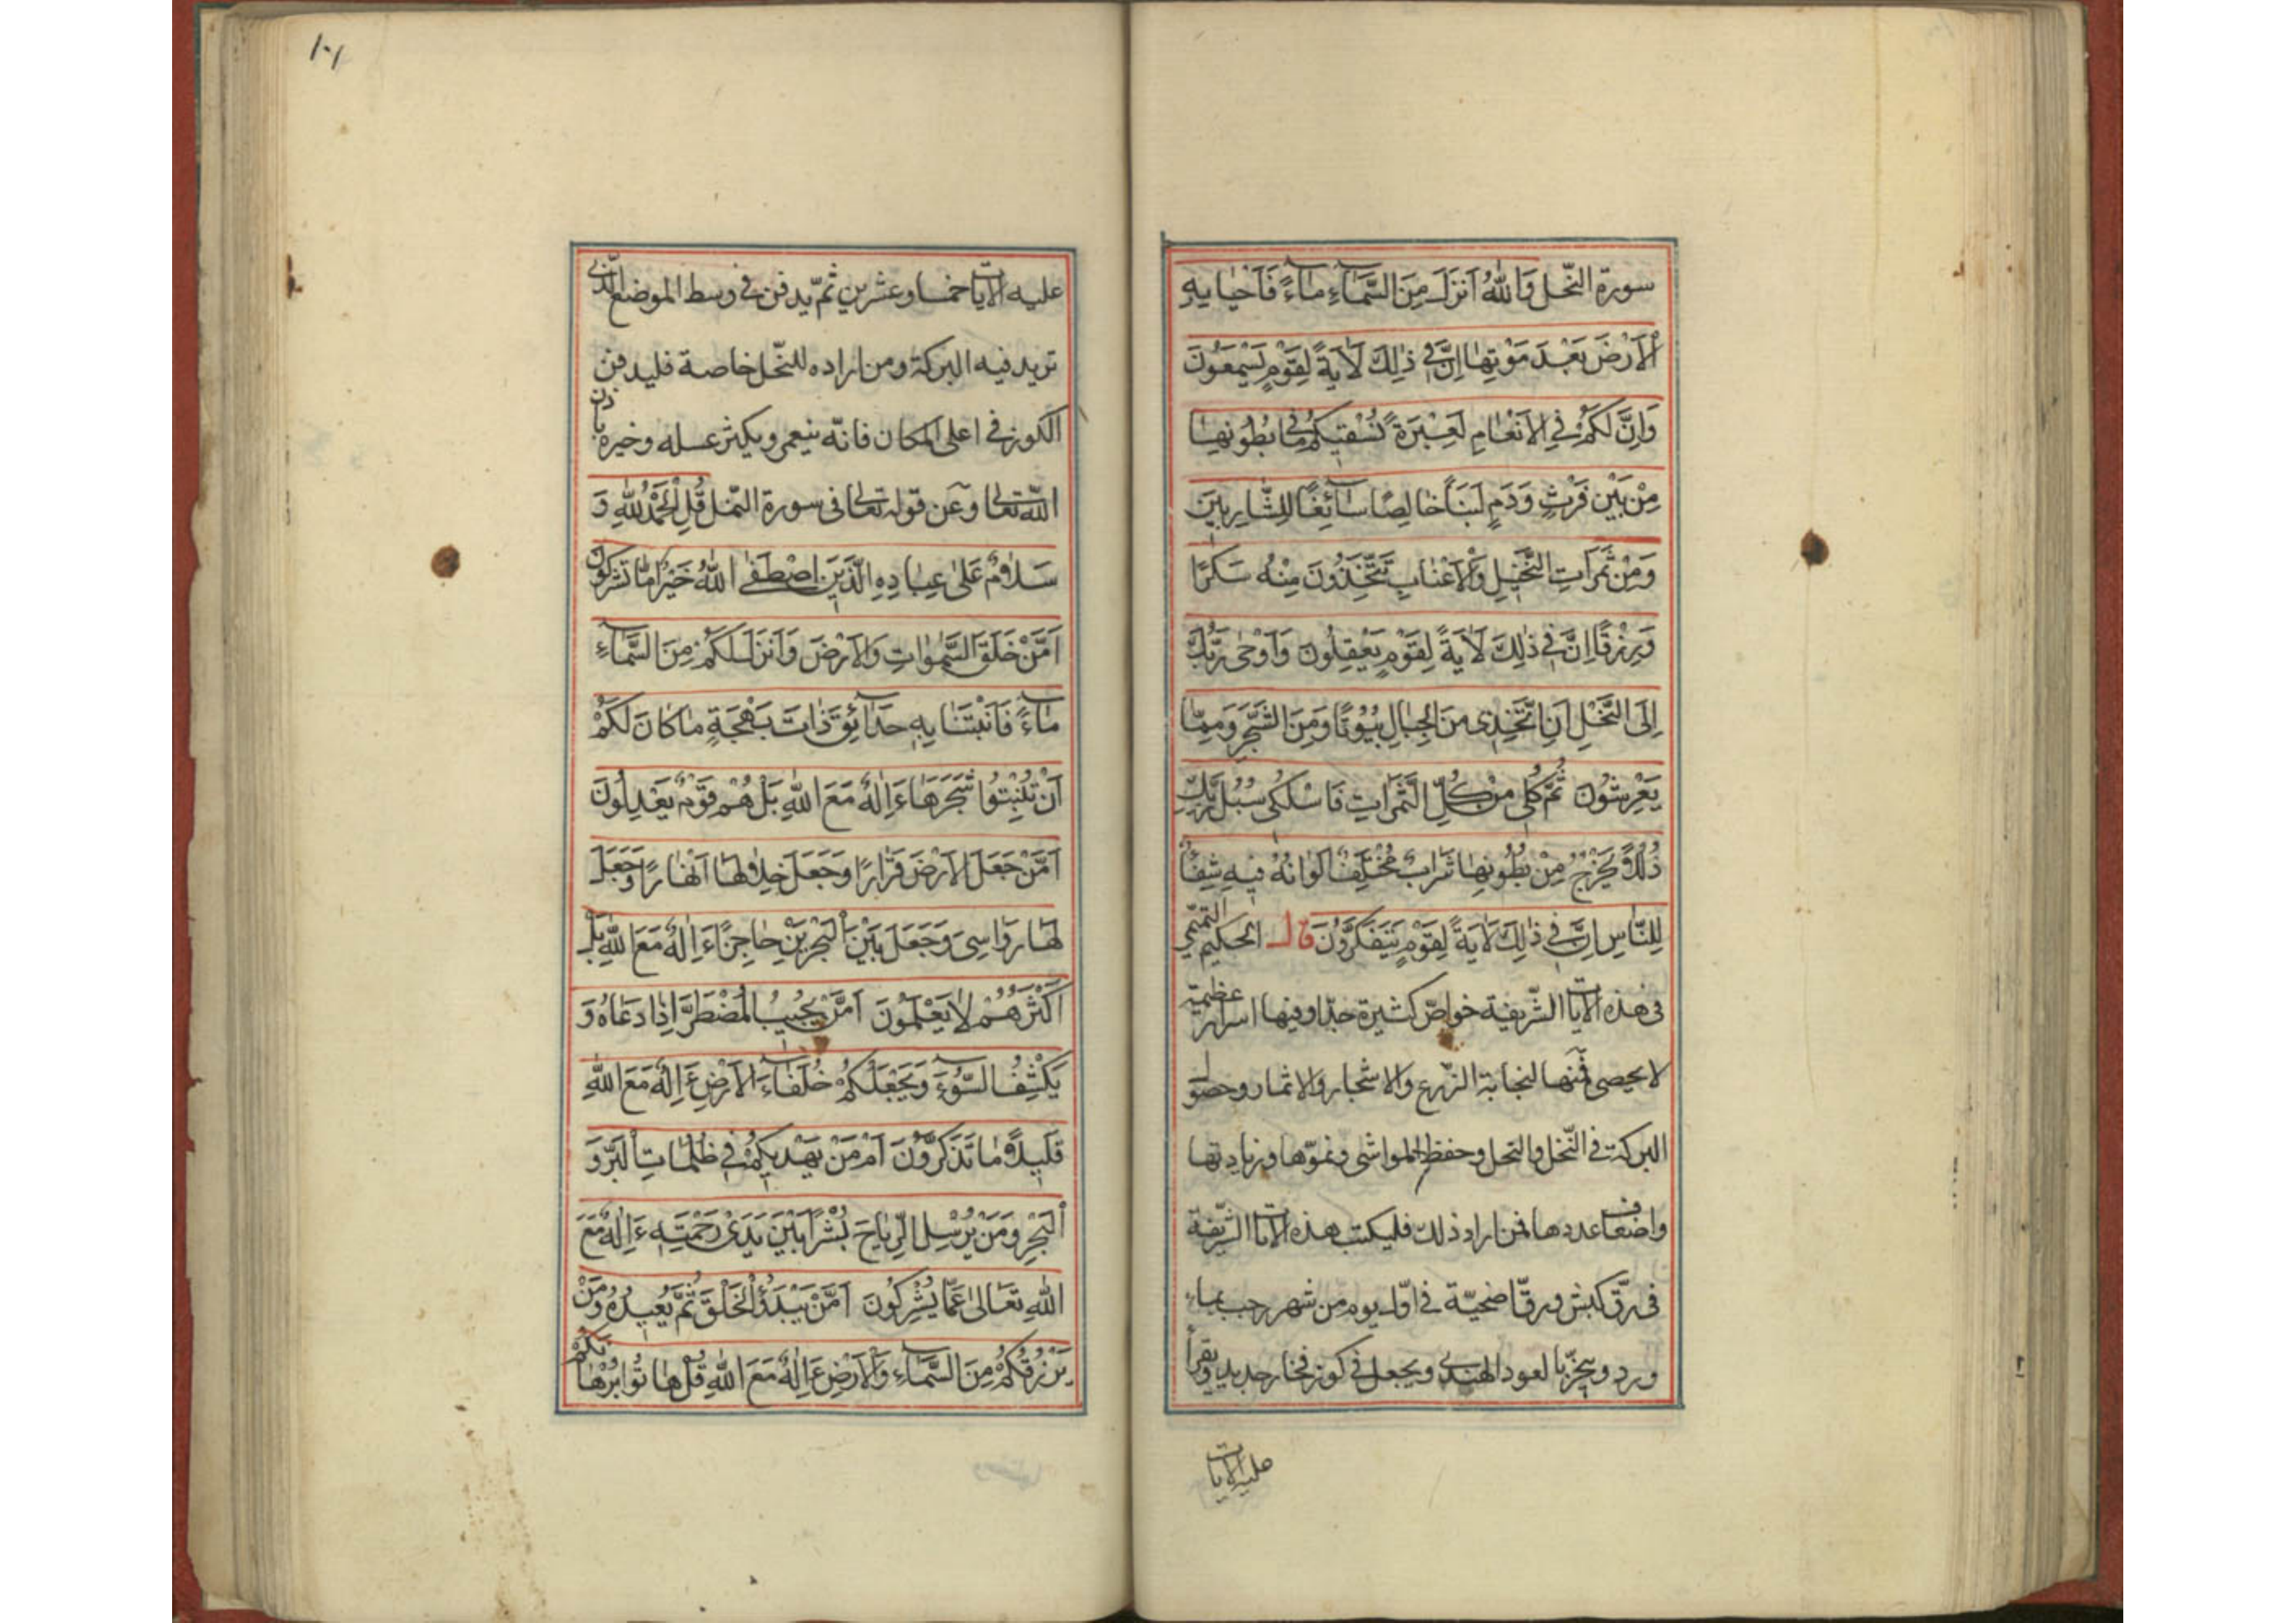 سورة النّحل وَاللّٰهُ اَنْزَلَ مِنَ السَّمَاۤءِ مَاۤءً فَاَحْيَا بِهِ
الْاَرْضَ بَعْدَ مَوْتِهَا اِنَّ فِي ذٰلِكَ لَاٰيَةً لِقَوْمٍ يَسْمَعُونَ
وَاِنَّ لَكُمْ فِي الْاَنْعَامِ لَعِبْرَةً نُسْقِيكُمْ مِمَّا فِي بُطُونِهَا
مِنْ بَيْنِ فَرْثٍ وَدَمٍ لَبَنًا خَالِصًا سَاۤئِغًا لِلشَّارِبِينَ
وَمِنْ ثَمَرَاتِ النَّخِيلِ وَالْاَعْنَابِ تَتَّخِذُونَ مِنْهُ سَكَرًا
وَرِزْقًا اِنَّ فِي ذٰلِكَ لَاٰيَةً لِقَوْمٍ يَعْقِلُونَ وَاَوْحٰى رَبُّكَ
اِلَى النَّحْلِ اَنِ اتَّخِذِي مِنَ الْجِبَالِ بُيُوتًا وَمِنَ الشَّجَرِ وَمِمَّا
يَعْرِشُونَ ثُمَّ كُلِي مِنْ كُلِّ الثَّمَرَاتِ فَاسْلُكِي سُبُلَ رَبِّكِ
ذُلُلًا يَخْرُجُ مِنْ بُطُونِهَا شَرَابٌ مُخْتَلِفٌ اَلْوَانُهُ فِيهِ شِفَاۤءٌ
لِلنَّاسِ اِنَّ فِي ذٰلِكَ لَاٰيَةً لِقَوْمٍ يَتَفَكَّرُونَ قال الحكيم التميمي
فى هذه الايات الشّريفة خواصّ كثيرة جدّا وفيها اسرار عظيمة
لا يحصى فمنها لنجابة الزّرع والاشجار والاثمار وحصول
البركة فى النّخل والنحل وحفظ المواشى ونموّها وزيادتها
واضعاف عددها فمن اراد ذلك فليكتب هذه الايات الشّريفة
فى رقّ كبش ورقّا ضحيّة فى اوّل يوم من شهر رجب بماء
ورد ويبخّر بالعود الهندى ويجعل فى كوز فخار جديد ويقرأ
عليه الايات
١٠١
عليه الايات خمسا وعشرين ثمّ يدفن فى وسط الموضع الّذى
تريد فيه البركة ومن اراده للنّحل خاصة فليدفن
الكوز فى اعلى المكان فانّه ينعمر ويكثر عسله وخيره باذن
اللّٰه تعالى وعن قوله تعالى فى سورة النّمل قُلِ الْحَمْدُ لِلّٰهِ وَ
سَلَامٌ عَلٰى عِبَادِهِ الَّذِينَ اصْطَفٰى اَللّٰهُ خَيْرٌ اَمَّا تُشْرِكُونَ
اَمَّنْ خَلَقَ السَّمٰوَاتِ وَالْاَرْضَ وَاَنْزَلَ لَكُمْ مِنَ السَّمَاۤءِ
مَاۤءً فَاَنْبَتْنَا بِهِ حَدَاۤئِقَ ذَاتَ بَهْجَةٍ مَا كَانَ لَكُمْ
اَنْ تُنْبِتُوا شَجَرَهَا ءَاِلٰهٌ مَعَ اللّٰهِ بَلْ هُمْ قَوْمٌ يَعْدِلُونَ
اَمَّنْ جَعَلَ الْاَرْضَ قَرَارًا وَجَعَلَ خِلَالَهَا اَنْهَارًا وَجَعَلَ
لَهَا رَوَاسِيَ وَجَعَلَ بَيْنَ الْبَحْرَيْنِ حَاجِزًا ءَاِلٰهٌ مَعَ اللّٰهِ بَلْ
اَكْثَرُهُمْ لَا يَعْلَمُونَ اَمَّنْ يُجِيبُ الْمُضْطَرَّ اِذَا دَعَاهُ وَ
يَكْشِفُ السُّوۤءَ وَيَجْعَلُكُمْ خُلَفَاۤءَ الْاَرْضِ ءَاِلٰهٌ مَعَ اللّٰهِ
قَلِيلًا مَا تَذَكَّرُونَ اَمْ مَنْ يَهْدِيكُمْ فِي ظُلُمَاتِ الْبَرِّ وَ
الْبَحْرِ وَمَنْ يُرْسِلُ الرِّيَاحَ بُشْرًا بَيْنَ يَدَيْ رَحْمَتِهِ ءَاِلٰهٌ مَعَ
اللّٰهِ تَعَالَى عَمَّا يُشْرِكُونَ اَمَّنْ يَبْدَؤُا الْخَلْقَ ثُمَّ يُعِيدُهُ وَمَنْ
يَرْزُقُكُمْ مِنَ السَّمَاۤءِ وَالْاَرْضِ ءَاِلٰهٌ مَعَ اللّٰهِ قُلْ هَاتُوا بُرْهَانَكُمْ